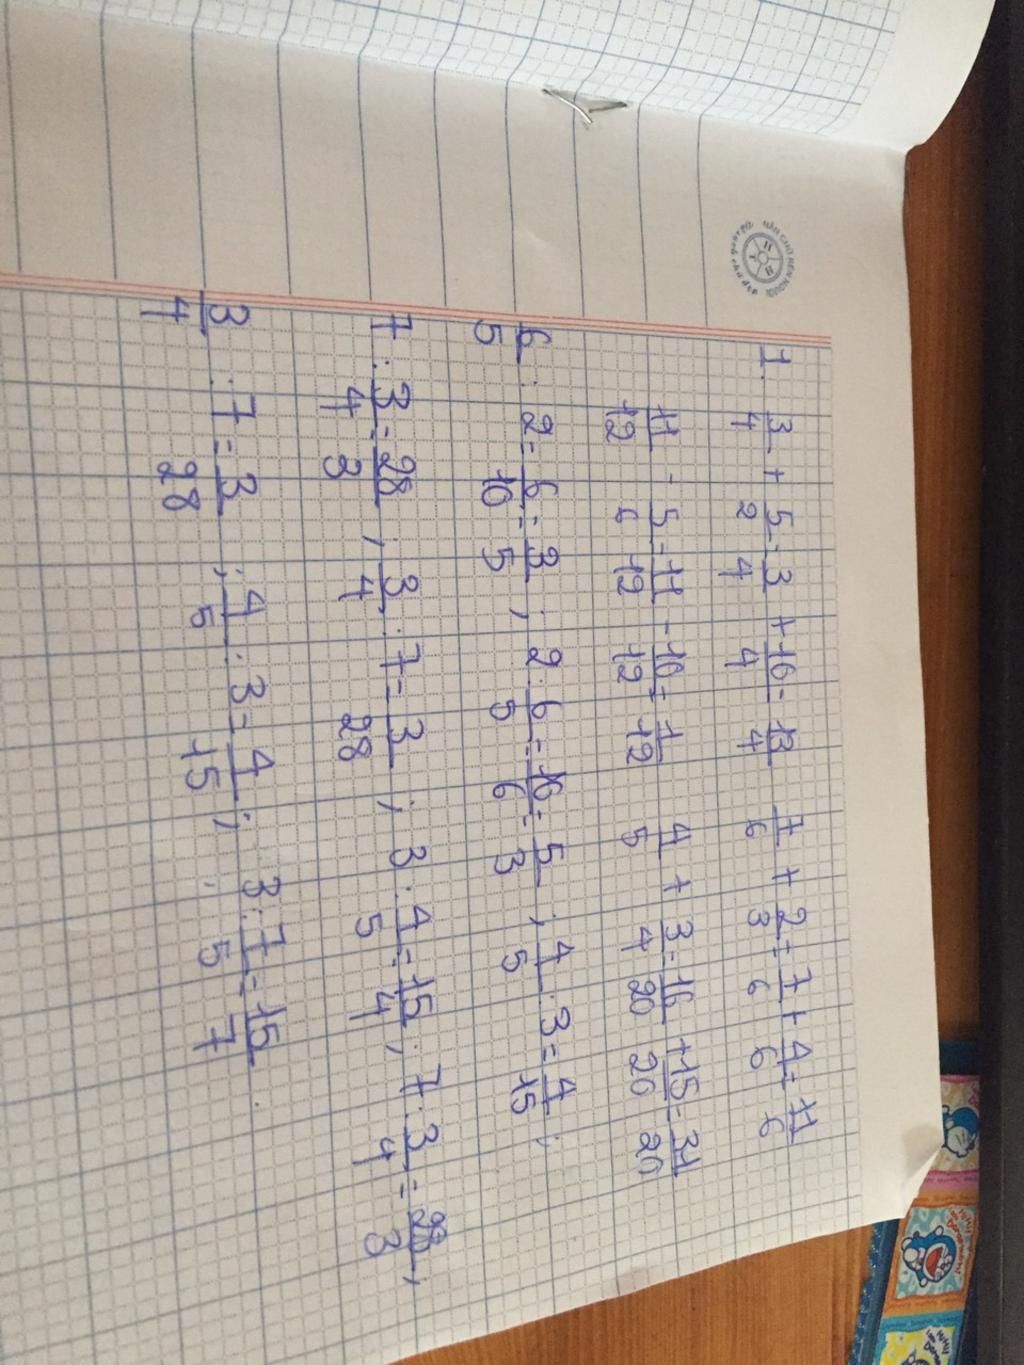 1. 3/4 + 5/2 = 3/4 + 10/4 = 13/4 7/6 + 2/3 = 7/6 + 4/6 = 11/6
11/12 - 5/6 = 11/12 - 10/12 = 1/12 4/5 + 3/4 = 16/20 + 15/20 = 31/20
6/5 : 2 = 6/10 = 3/5 ; 2 : 6/5 = 10/6 = 5/3 ; 4/5 : 3 = 4/15 ;
7 : 3/4 = 28/3 ; 3/4 : 7 = 3/28 ; 3 : 4/5 = 15/4 ; 7 : 3/4 = 28/3 ;
3/4 : 7 = 3/28 ; 4/5 : 3 = 4/15 ; 3 : 7/5 = 15/7 .